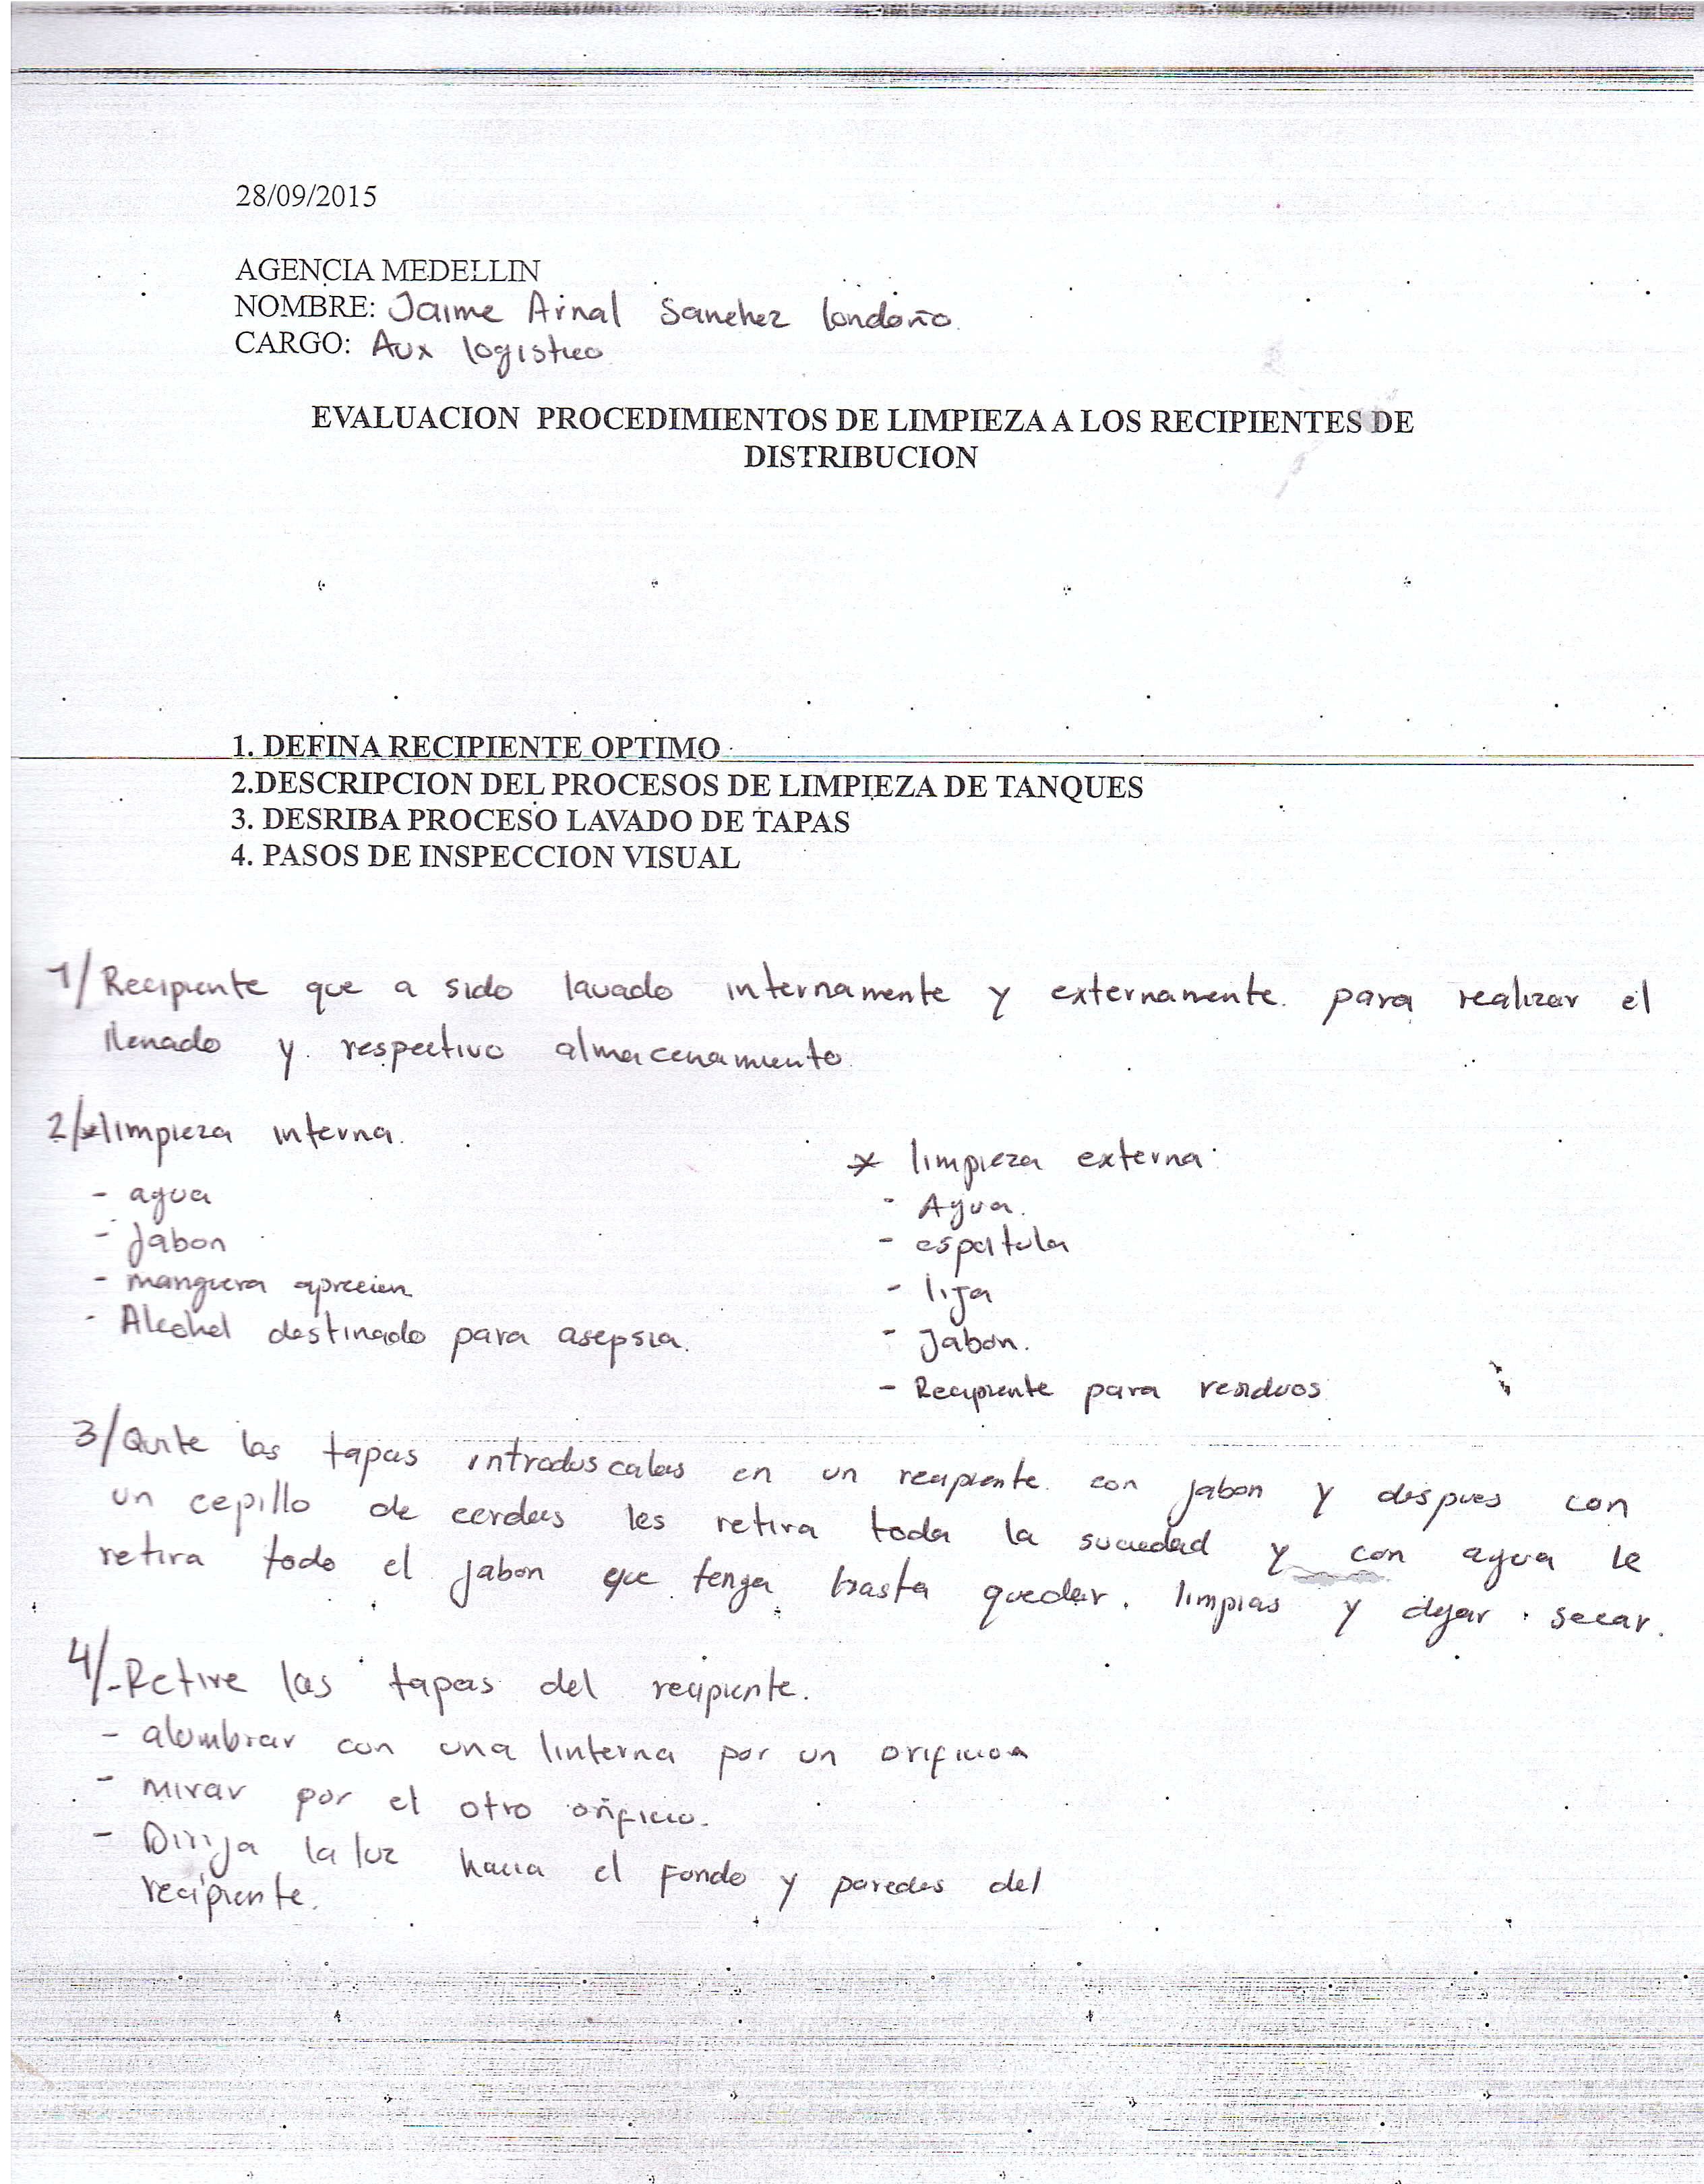 28/09/2015
AGENCIA MEDELLIN
NOMBRE: Jaime Arnal Sanchez londoño
CARGO: Aux logistico
EVALUACION PROCEDIMIENTOS DE LIMPIEZA A LOS RECIPIENTES DE
DISTRIBUCION
1. DEFINA RECIPIENTE OPTIMO
2.DESCRIPCION DEL PROCESOS DE LIMPIEZA DE TANQUES
3. DESRIBA PROCESO LAVADO DE TAPAS
4. PASOS DE INSPECCION VISUAL
1/ Recipiente que a sido lavado internamente y externamente. para realizar el
llenado y respectivo almacenamiento.
2/* limpieza interna.
- agua
- Jabon
- manguera apresion
- Alcohol destinado para asepsia.
* limpieza externa:
- Agua.
- espatula
- lija
- Jabon.
- Recipiente para residuos
3/ Quite las tapas introduscalas en un recipiente con jabon y despues con
un cepillo de cerdas les retira toda la suciedad y con agua le
retira todo el jabon que tenga hasta quedar. limpias y dejar secar.
4/- Retire las tapas del recipiente.
- alumbrar con una linterna por un orificio
- mirar por el otro orificio.
- Dirija la luz hacia el fondo y paredes del
recipiente.